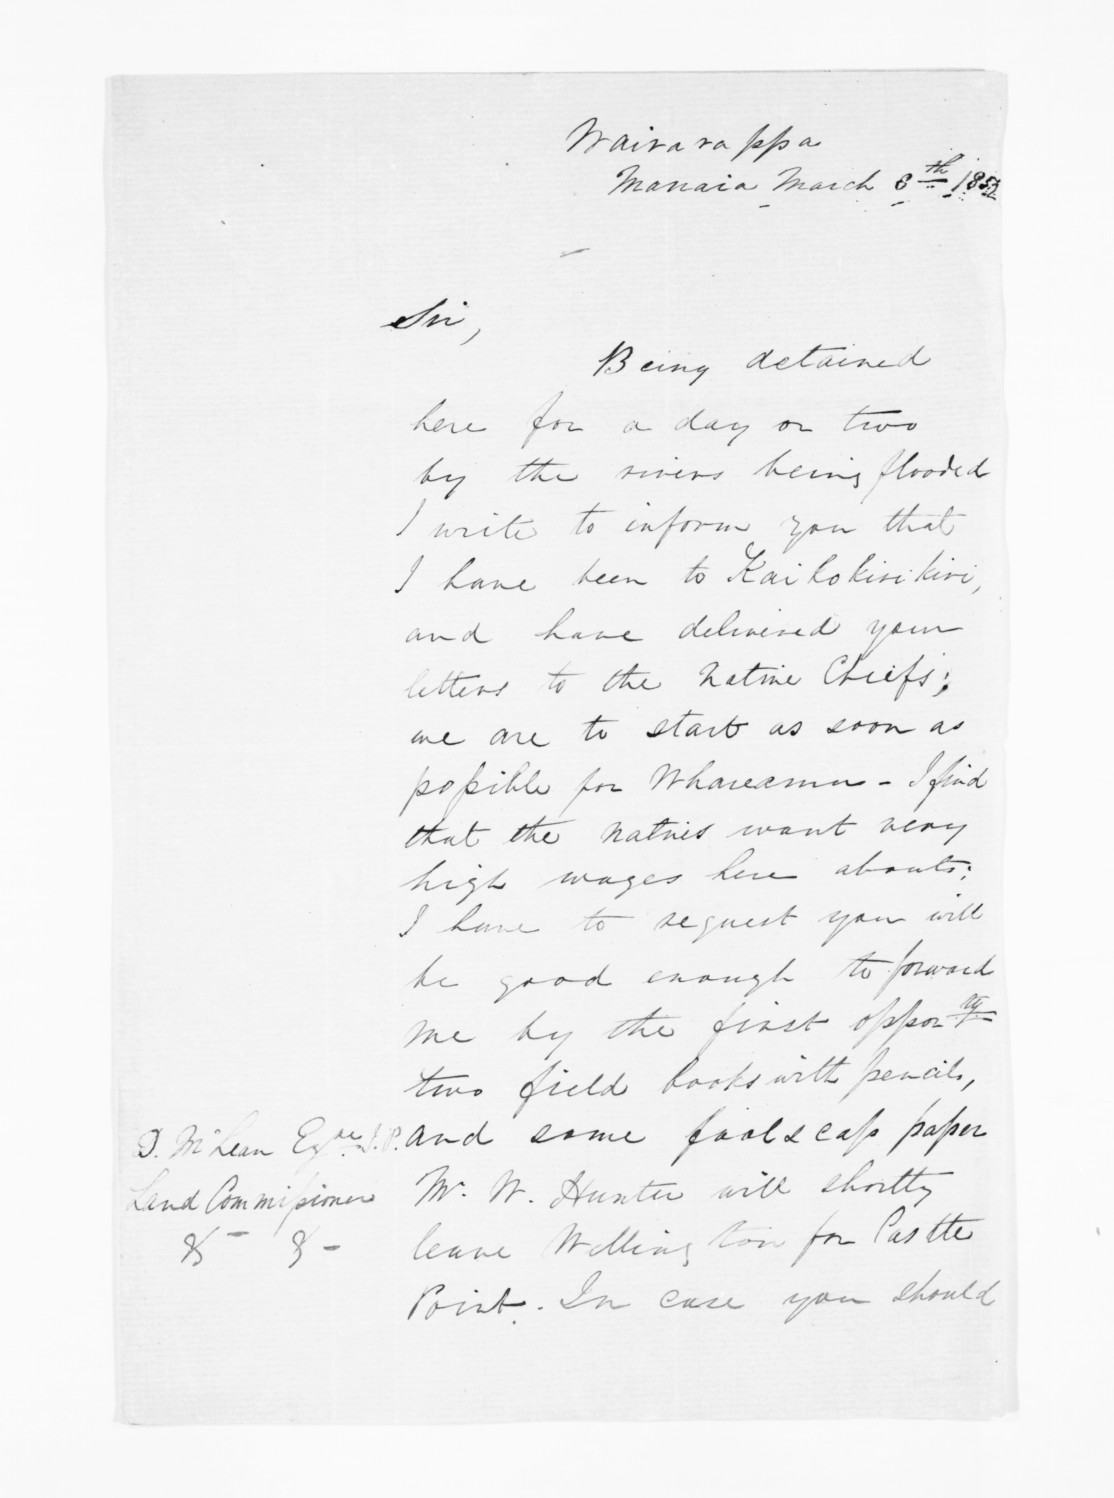 Wairarappa
Manaia March 8th 1852
Sir,
Being detained
here for a day or two
by the rivers being flooded
I write to inform you that
I have been to Kaikokirikiri,
and have delivered your
letters to the Native Chiefs;
we are to start as soon as
possible for Whareama - I find
that the natives want very
high wages here abouts;
I have to request you will
be good enough to forward
me by the first opporty
two field books with pencils,
and some foolscap paper
Mr. W. Hunter will shortly
leave Wellington for Castle
Point. In case you should
D. McLean Esqre. J.P.
Land Commissioner
&- &-